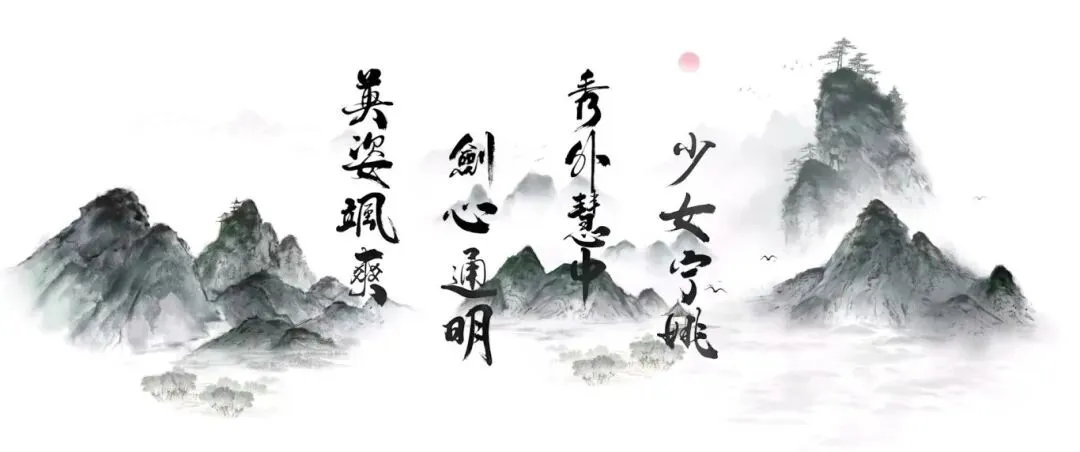 少女宁姚
秀外慧中
劍心通明
英姿颯爽